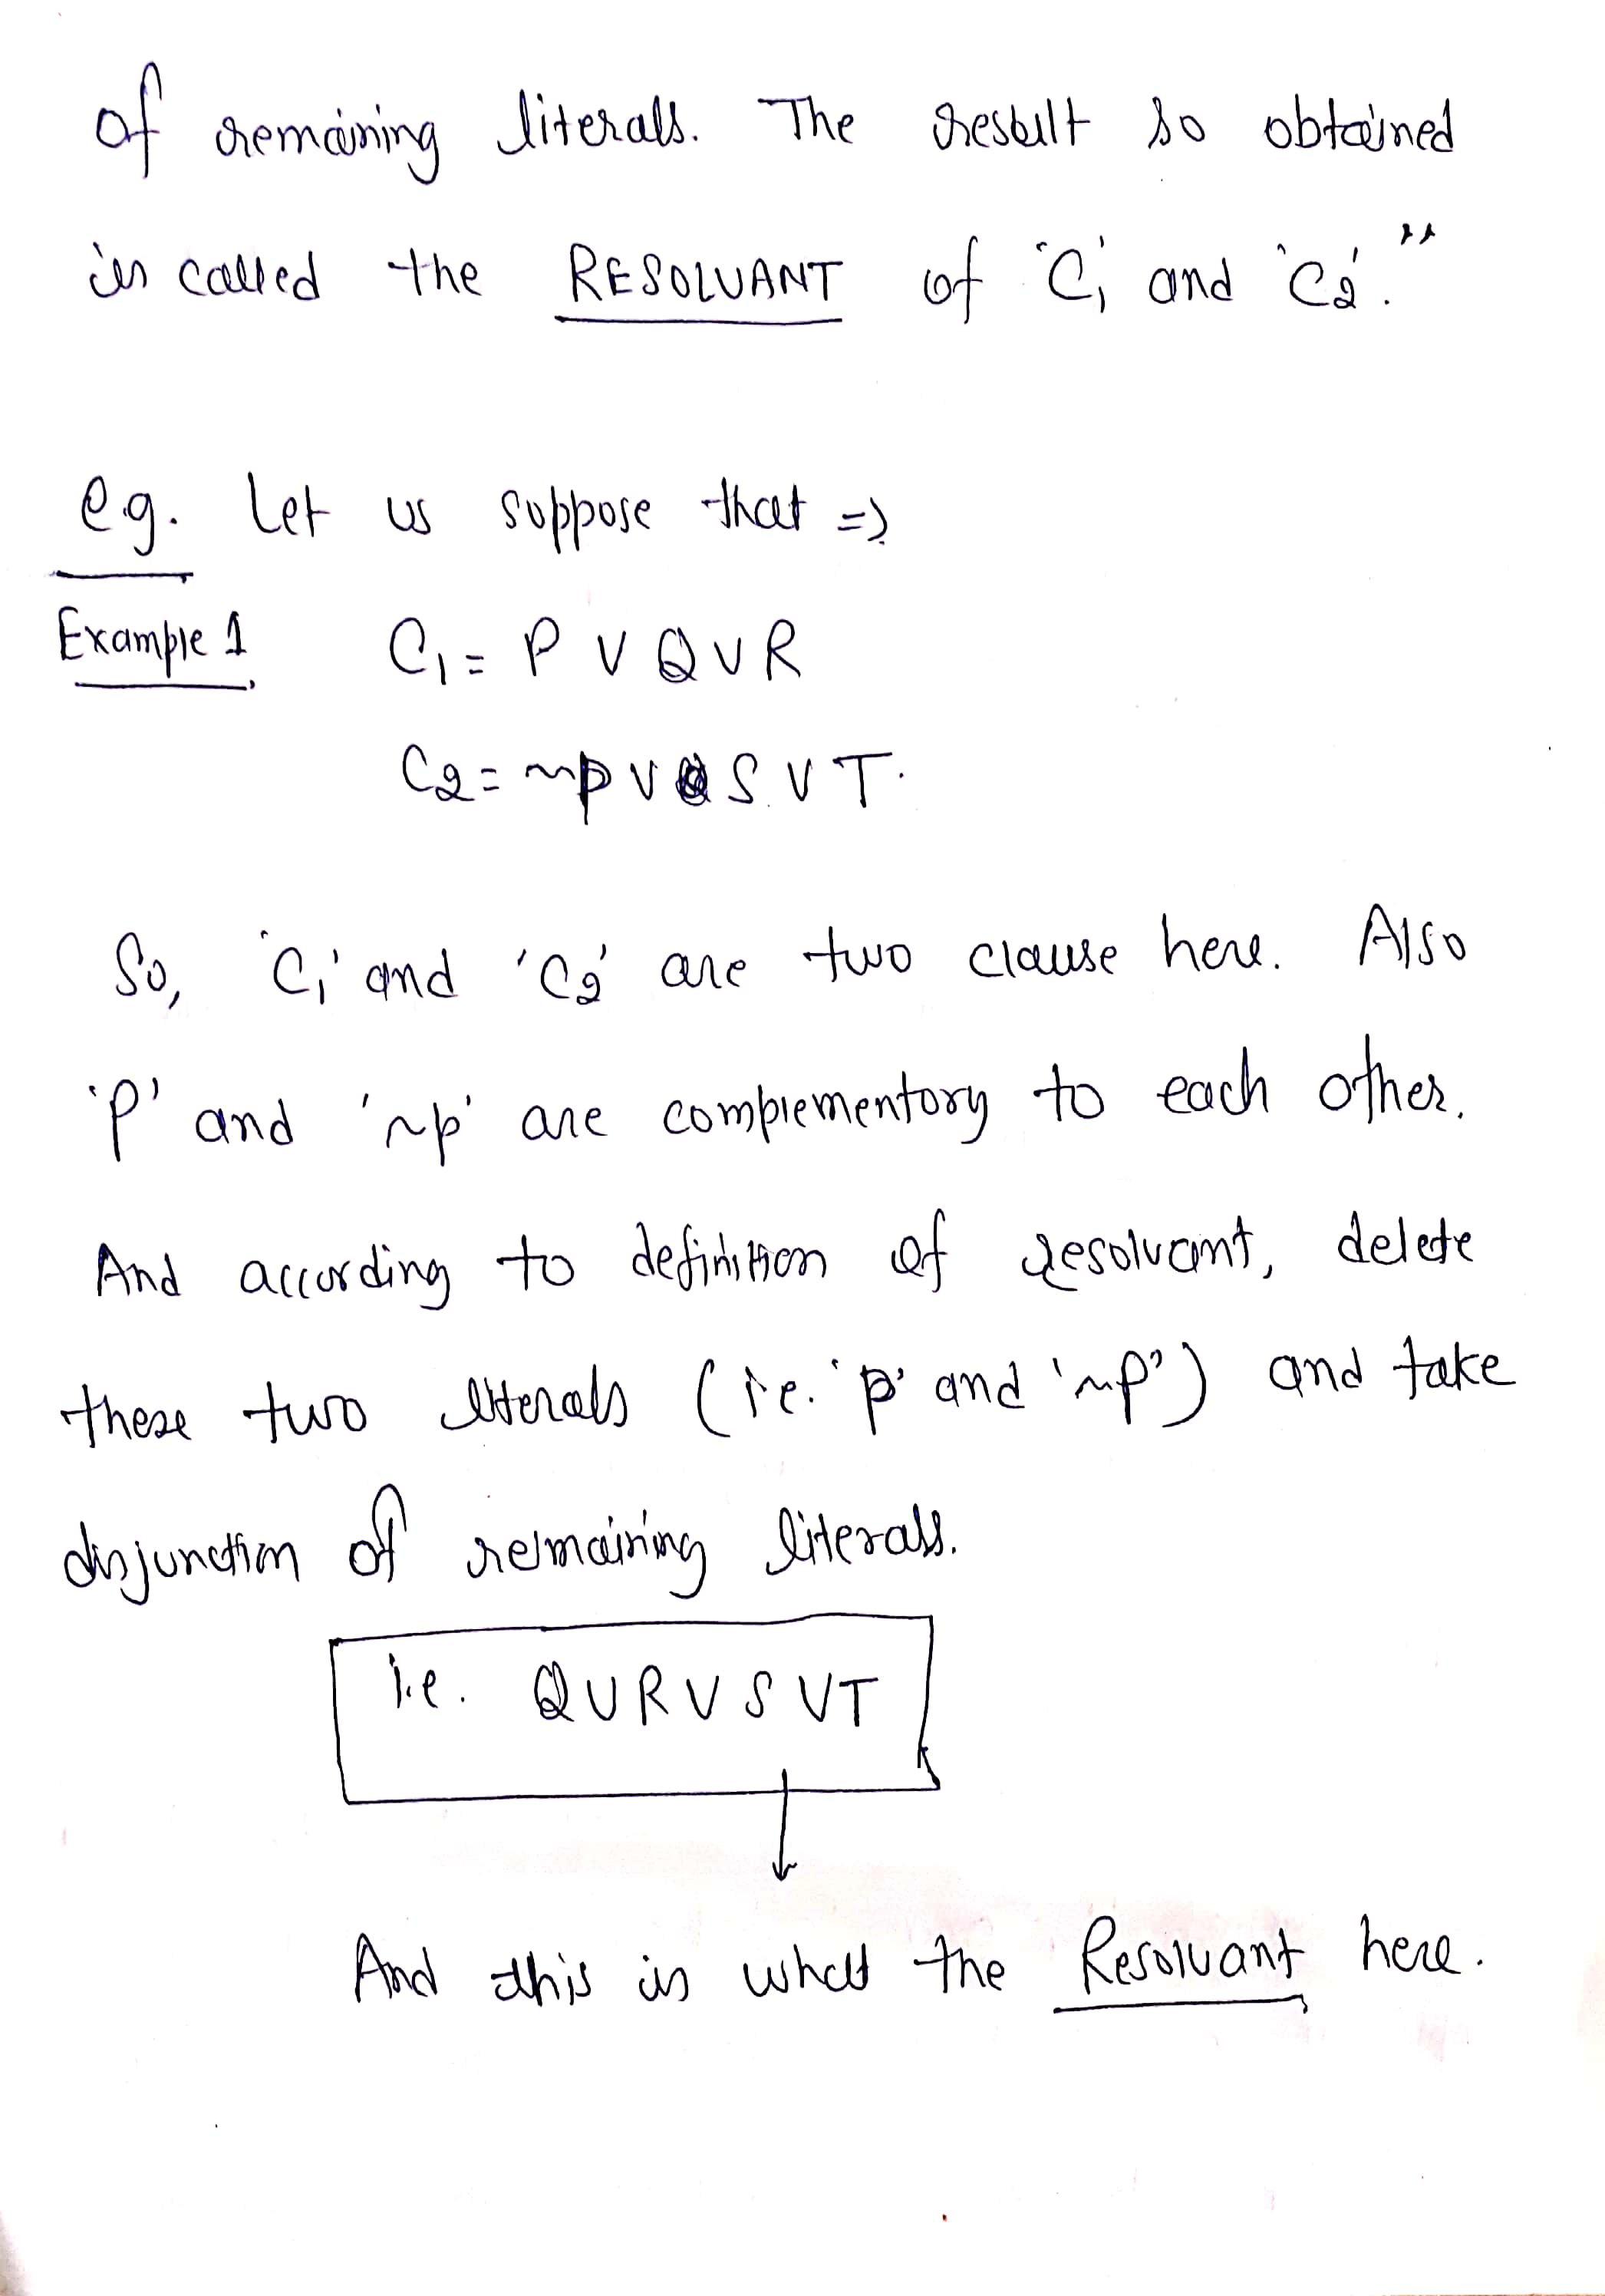 of remaining literals. The result so obtained
is called the RESOLVANT of 'C₁' and 'C₂'."
e.g. Let us suppose that =>
Example 1 C₁ = P V Q V R
C₂ = ~P V S V T.
So, 'C₁' and 'C₂' are two clause here. Also
'P' and '~p' are complementory to each other.
And according to definition of resolvant, delete
these two literals (i.e. 'p' and '~p') and take
disjunction of remaining literals.
i.e. Q V R V S V T
And this is what the Resolvant here.